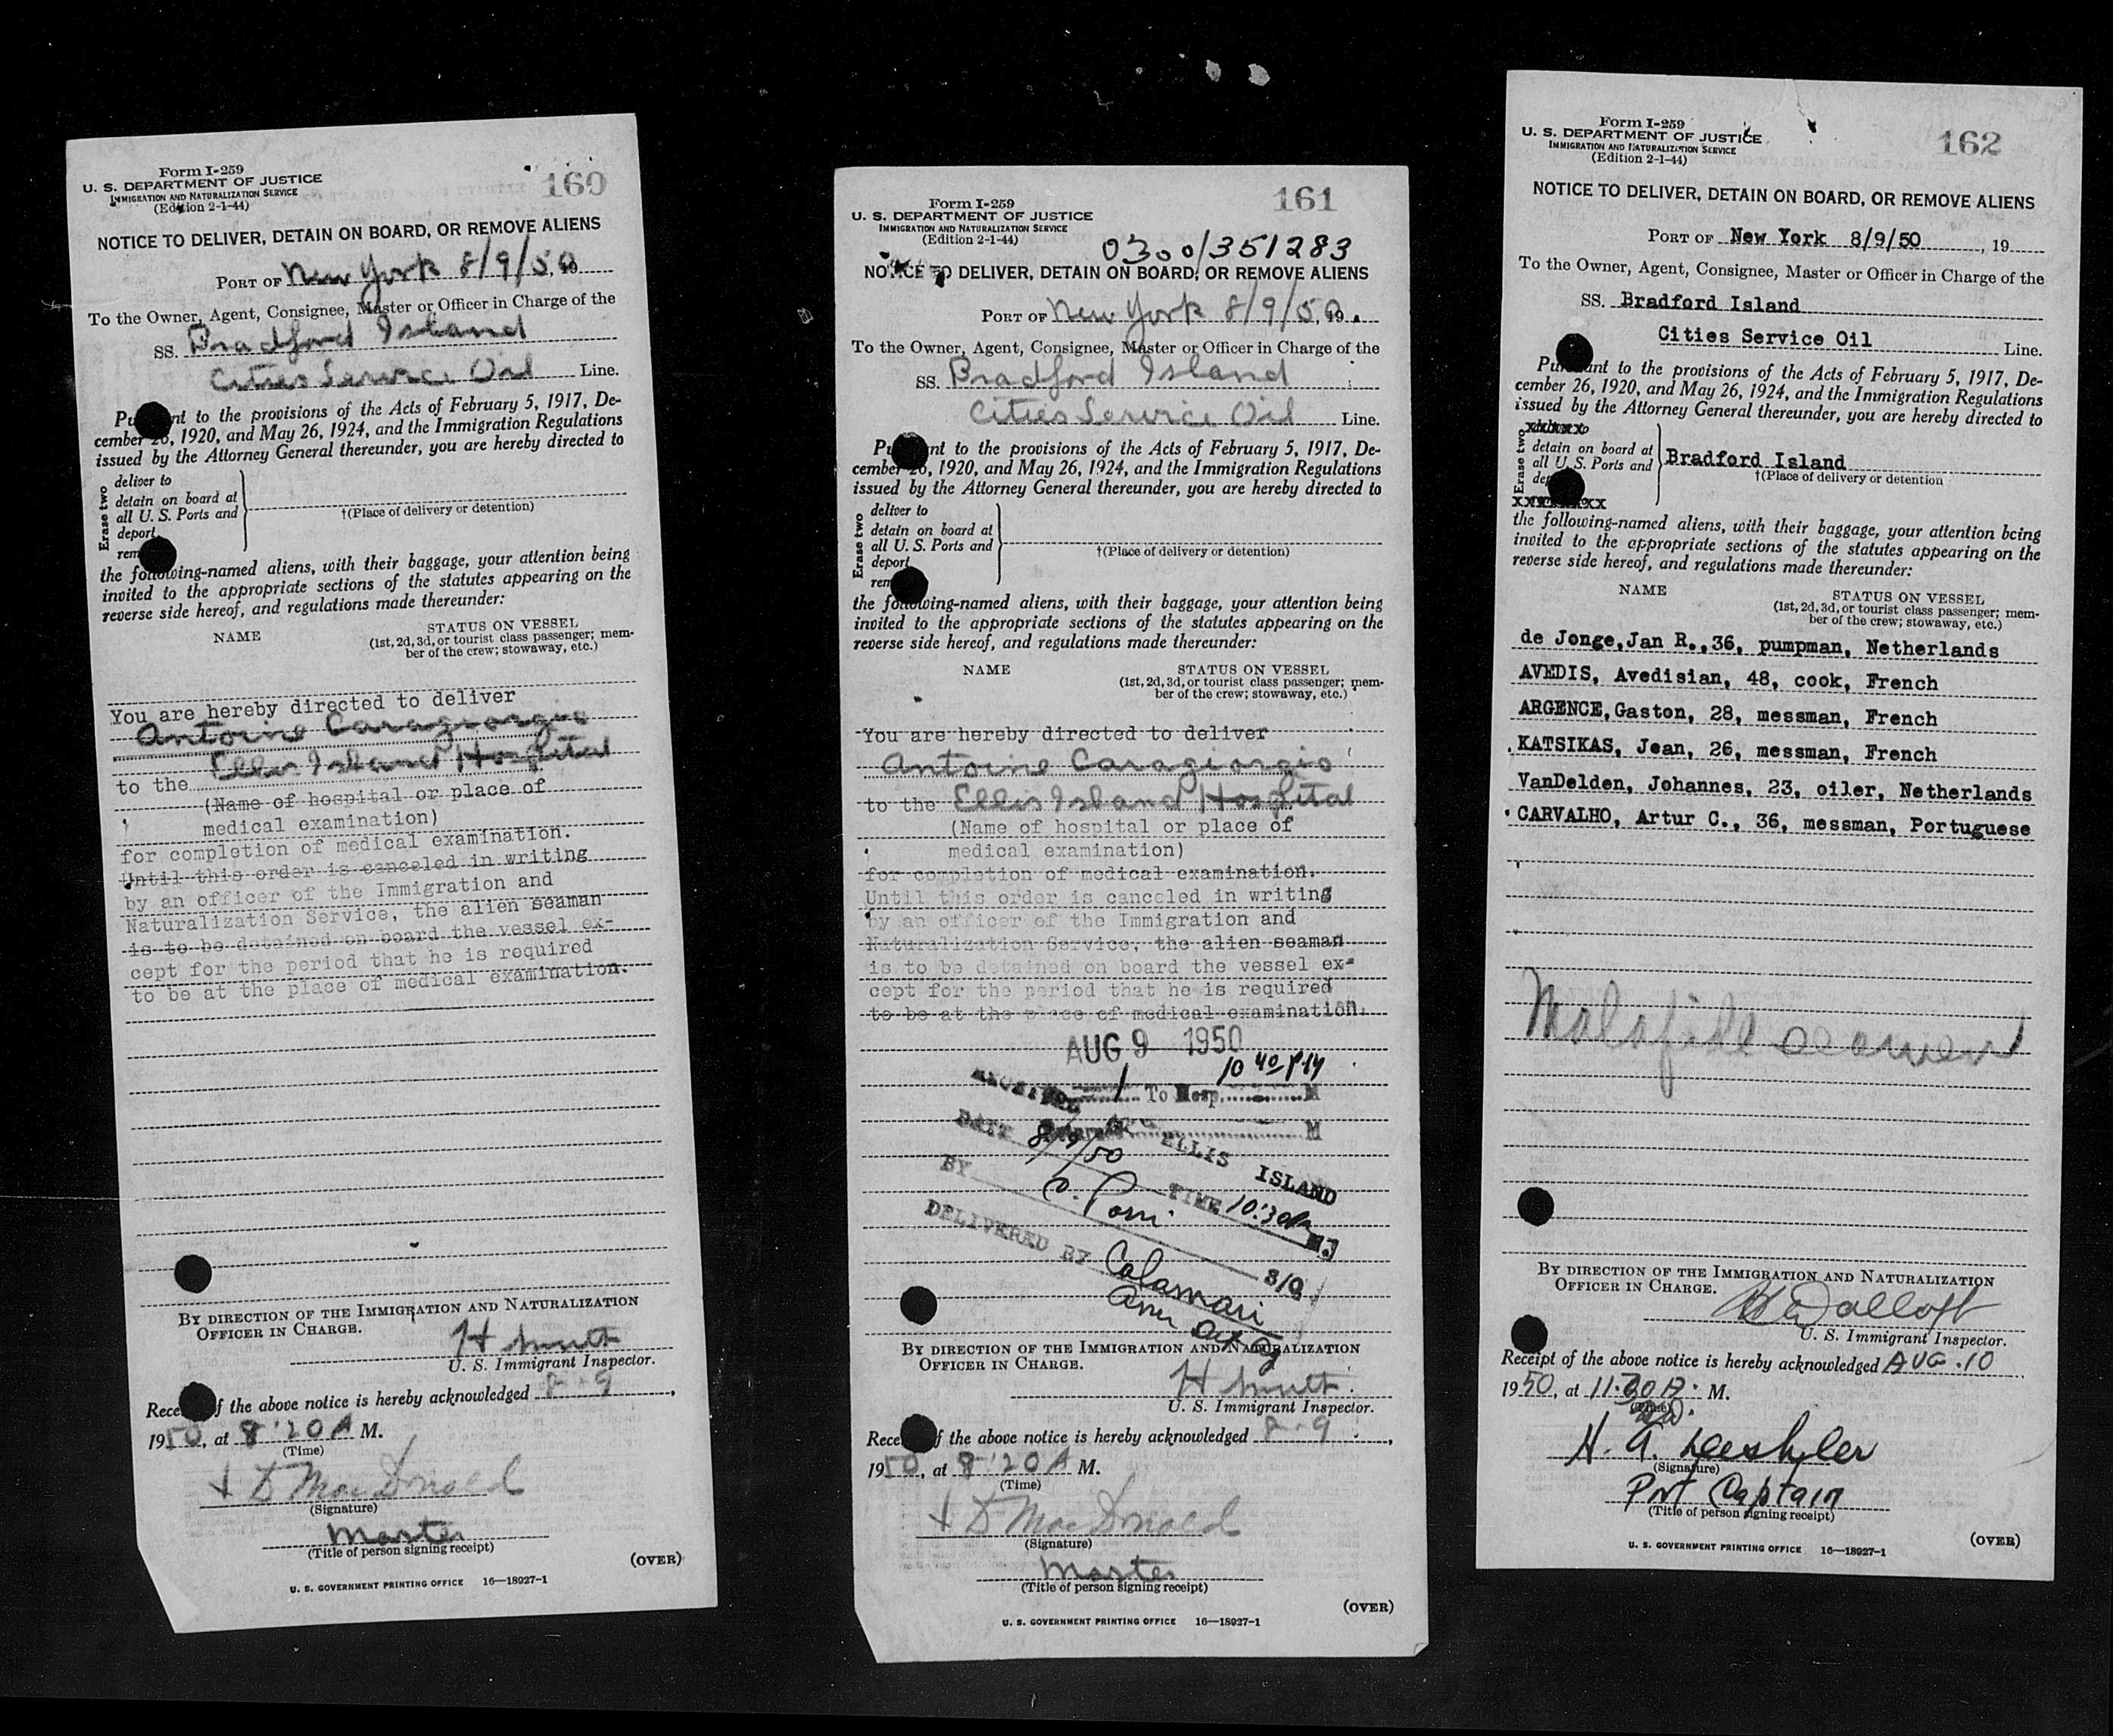 Form I-259
U. S. DEPARTMENT OF JUSTICE
IMMIGRATION AND NATURALIZATION SERVICE
(Edition 2-1-44)
160
NOTICE TO DELIVER, DETAIN ON BOARD, OR REMOVE ALIENS
PORT OF New York 8/9/50
To the Owner, Agent, Consignee, Master or Officer in Charge of the
SS. Bradford Island
Cities Service Oil Line.
nt to the provisions of the Acts of February 5, 1917, De-
cember 26, 1920, and May 26, 1924, and the Immigration Regulations
issued by the Attorney General thereunder, you are hereby directed to
Erase two
deliver to
detain on board at
all U. S. Ports and
deport
rem
†(Place of delivery or detention)
the following-named aliens, with their baggage, your attention being
invited to the appropriate sections of the statutes appearing on the
reverse side hereof, and regulations made thereunder:
NAME
STATUS ON VESSEL
(1st, 2d, 3d, or tourist class passenger; mem-
ber of the crew; stowaway, etc.)
You are hereby directed to deliver
Antoine Caragiorgio
to the Ellis Island Hospital
(Name of hospital or place of
medical examination)
for completion of medical examination.
Until this order is canceled in writing
by an officer of the Immigration and
Naturalization Service, the alien seaman
is to be detained on board the vessel ex-
cept for the period that he is required
to be at the place of medical examination.
BY DIRECTION OF THE IMMIGRATION AND NATURALIZATION
OFFICER IN CHARGE.
U. S. Immigrant Inspector.
Rece f the above notice is hereby acknowledged 8-9,
1950, at 8:20 A M.
(Time)
MacDonald
(Signature)
Master
(Title of person signing receipt)
(OVER)
U. S. GOVERNMENT PRINTING OFFICE 16—18927-1
Form I-259
U. S. DEPARTMENT OF JUSTICE
IMMIGRATION AND NATURALIZATION SERVICE
(Edition 2-1-44)
161
0300/351283
NOTICE TO DELIVER, DETAIN ON BOARD, OR REMOVE ALIENS
PORT OF New York 8/9/50
To the Owner, Agent, Consignee, Master or Officer in Charge of the
SS. Bradford Island
Cities Service Oil Line.
nt to the provisions of the Acts of February 5, 1917, De-
cember 26, 1920, and May 26, 1924, and the Immigration Regulations
issued by the Attorney General thereunder, you are hereby directed to
Erase two
deliver to
detain on board at
all U. S. Ports and
deport
rem
†(Place of delivery or detention)
the following-named aliens, with their baggage, your attention being
invited to the appropriate sections of the statutes appearing on the
reverse side hereof, and regulations made thereunder:
NAME
STATUS ON VESSEL
(1st, 2d, 3d, or tourist class passenger; mem-
ber of the crew; stowaway, etc.)
You are hereby directed to deliver
Antoine Caragiorgio
to the Ellis Island Hospital
(Name of hospital or place of
medical examination)
for completion of medical examination.
Until this order is canceled in writing
by an officer of the Immigration and
Naturalization Service, the alien seaman
is to be detained on board the vessel ex-
cept for the period that he is required
to be at the place of medical examination.
AUG 9 1950
10 40 PM
1 To Hosp. M
M
RECEIVED ELLIS ISLAND
DATE 8/9/50 TIME 10:30 P M
BY
DELIVERED BY Calamari
8/9
BY DIRECTION OF THE IMMIGRATION AND NATURALIZATION
OFFICER IN CHARGE.
U. S. Immigrant Inspector.
Rece f the above notice is hereby acknowledged 8-9,
1950, at 8:20 A M.
(Time)
MacDonald
(Signature)
Master
(Title of person signing receipt)
(OVER)
U. S. GOVERNMENT PRINTING OFFICE 16—18927-1
Form I-259
U. S. DEPARTMENT OF JUSTICE
IMMIGRATION AND NATURALIZATION SERVICE
(Edition 2-1-44)
162
NOTICE TO DELIVER, DETAIN ON BOARD, OR REMOVE ALIENS
PORT OF New York 8/9/50, 19
To the Owner, Agent, Consignee, Master or Officer in Charge of the
SS. Bradford Island
Cities Service Oil Line.
Pursuant to the provisions of the Acts of February 5, 1917, De-
cember 26, 1920, and May 26, 1924, and the Immigration Regulations
issued by the Attorney General thereunder, you are hereby directed to
Erase two
detain on board at
all U. S. Ports and
dep
Bradford Island
†(Place of delivery or detention
the following-named aliens, with their baggage, your attention being
invited to the appropriate sections of the statutes appearing on the
reverse side hereof, and regulations made thereunder:
NAME
STATUS ON VESSEL
(1st, 2d, 3d, or tourist class passenger; mem-
ber of the crew; stowaway, etc.)
de Jonge, Jan R., 36, pumpman, Netherlands
AVEDIS, Avedisian, 48, cook, French
ARGENCE, Gaston, 28, messman, French
KATSIKAS, Jean, 26, messman, French
VanDelden, Johannes, 23, oiler, Netherlands
CARVALHO, Artur C., 36, messman, Portuguese
Malafide seamen
BY DIRECTION OF THE IMMIGRATION AND NATURALIZATION
OFFICER IN CHARGE.
U. S. Immigrant Inspector.
Receipt of the above notice is hereby acknowledged AUG. 10
1950, at 11:30 A. M.
(Time)
(Signature)
Port Captain
(Title of person signing receipt)
(OVER)
U. S. GOVERNMENT PRINTING OFFICE 16—18927-1